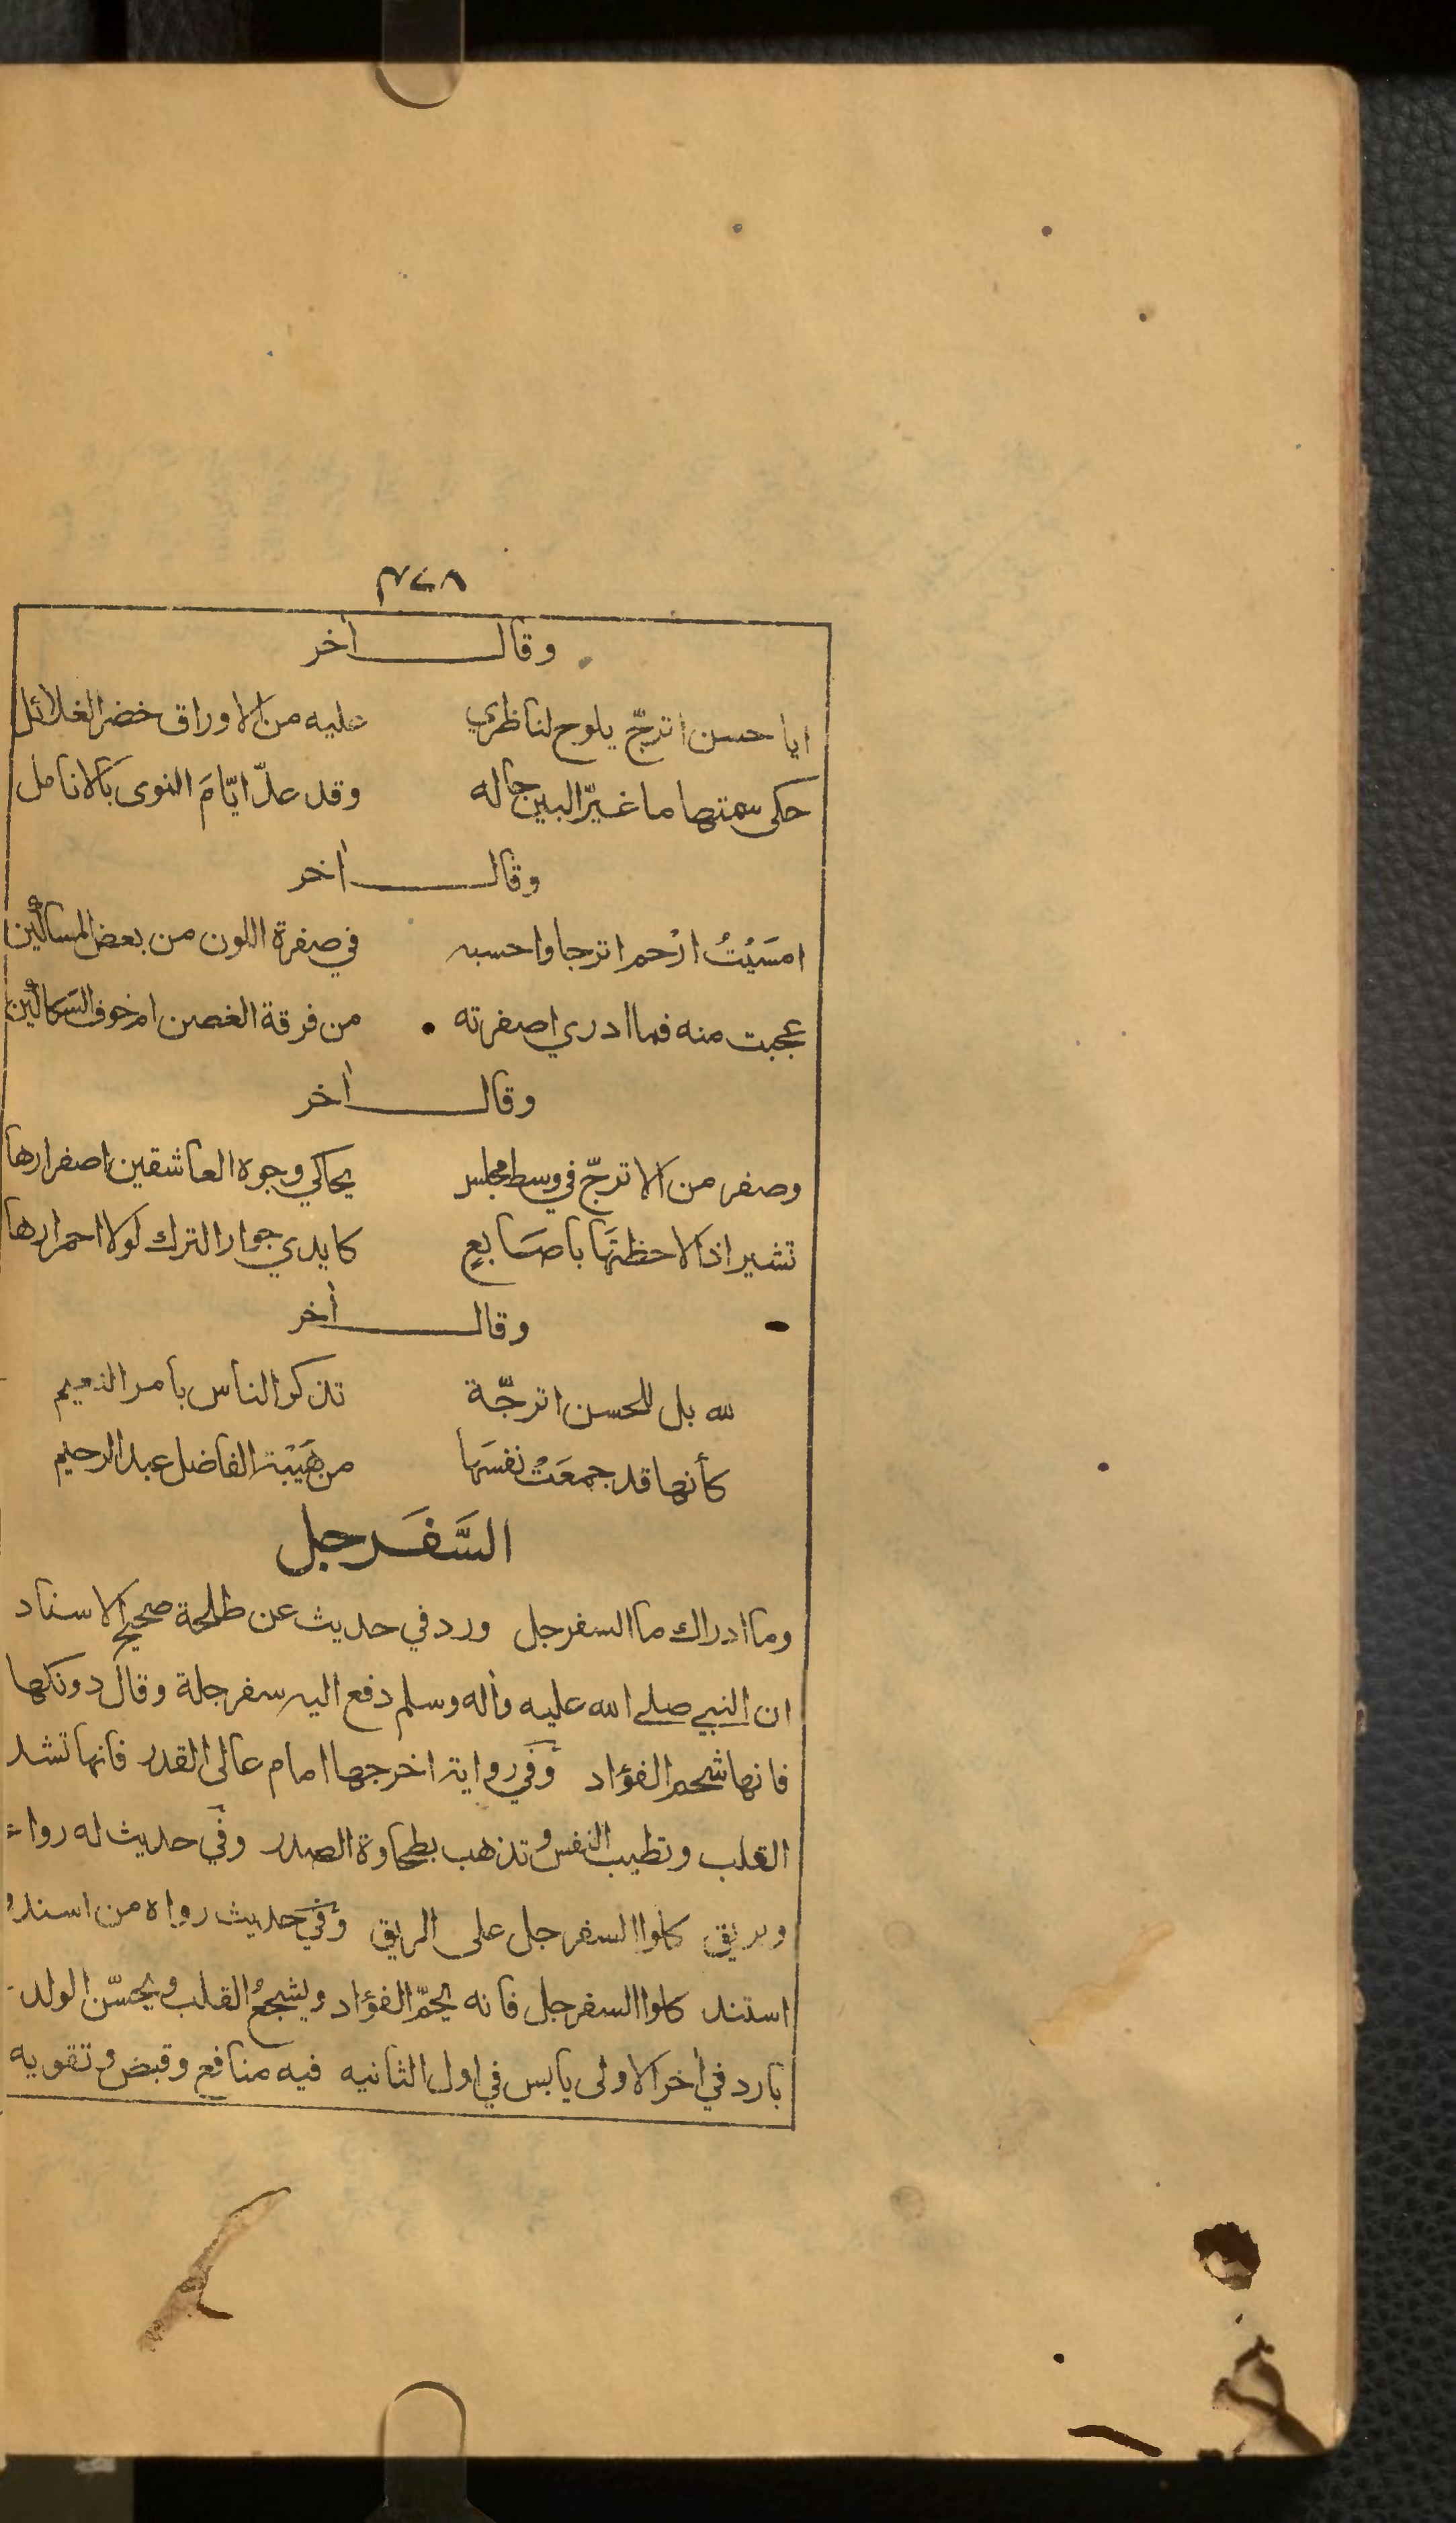 ٣٧٨
وقال اخر
ايا حسن اترجّ يلوح لناظري عليه من الاوراق خضر الغلائل
حكى سمتها ما غيّر البين حاله وقد عدّ ايّامَ النوى بالانامل
وقال اخر
امسَيْتُ ارْحم اترجا واحسبه في صفرة اللون من بعض المساكين
عجبت منه فما ادري اصفرته من فرقة الغصن ام خوف السكاكين
وقال اخر
وصفر من الاترجّ في وسط مجلس يحاكي وجوه العاشقين اصفرارها
تشير اذا لاحظتَها باصَابعٍ كايدي جوار الترك لولا احمرارها
وقال اخر
لله بل للحسن اترجّة تذكر الناس بامر النعيم
كأنها قد جمعَتْ نفسَها من هَيْبة الفاضل عبد الرحيم
السَّفَرجل
وما ادراك ما السفرجل ورد في حديث عن طلحة صحيح الاسناد
ان النبي صلى الله عليه واله وسلم دفع اليه سفرجلة وقال دونكها
فانها شحم الفؤاد وفي رواية اخرجها امام عالى القدر فانها تشد
القلب وتطيب النفس وتذهب بطخاوة الصدر وفي حديث له رواء
وبريق كلوا السفرجل على الريق وفي حديث رواه من اسند و
استند كلوا السفرجل فانه يجمّ الفؤاد ويشجعُ القلب ويحسّن الولد
بارد في اخر الاولى يابس في اول الثانيه فيه منافع وقبض وتقويه